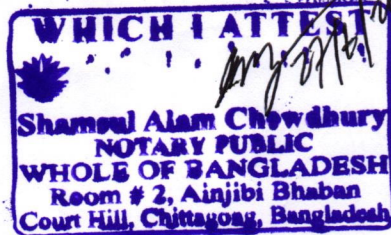 WHICH I ATTEST
Shamsul Alam Chowdhury
NOTARY PUBLIC
WHOLE OF BANGLADESH
Room # 2, Ainjibi Bhaban
Court Hill, Chittagong, Bangladesh